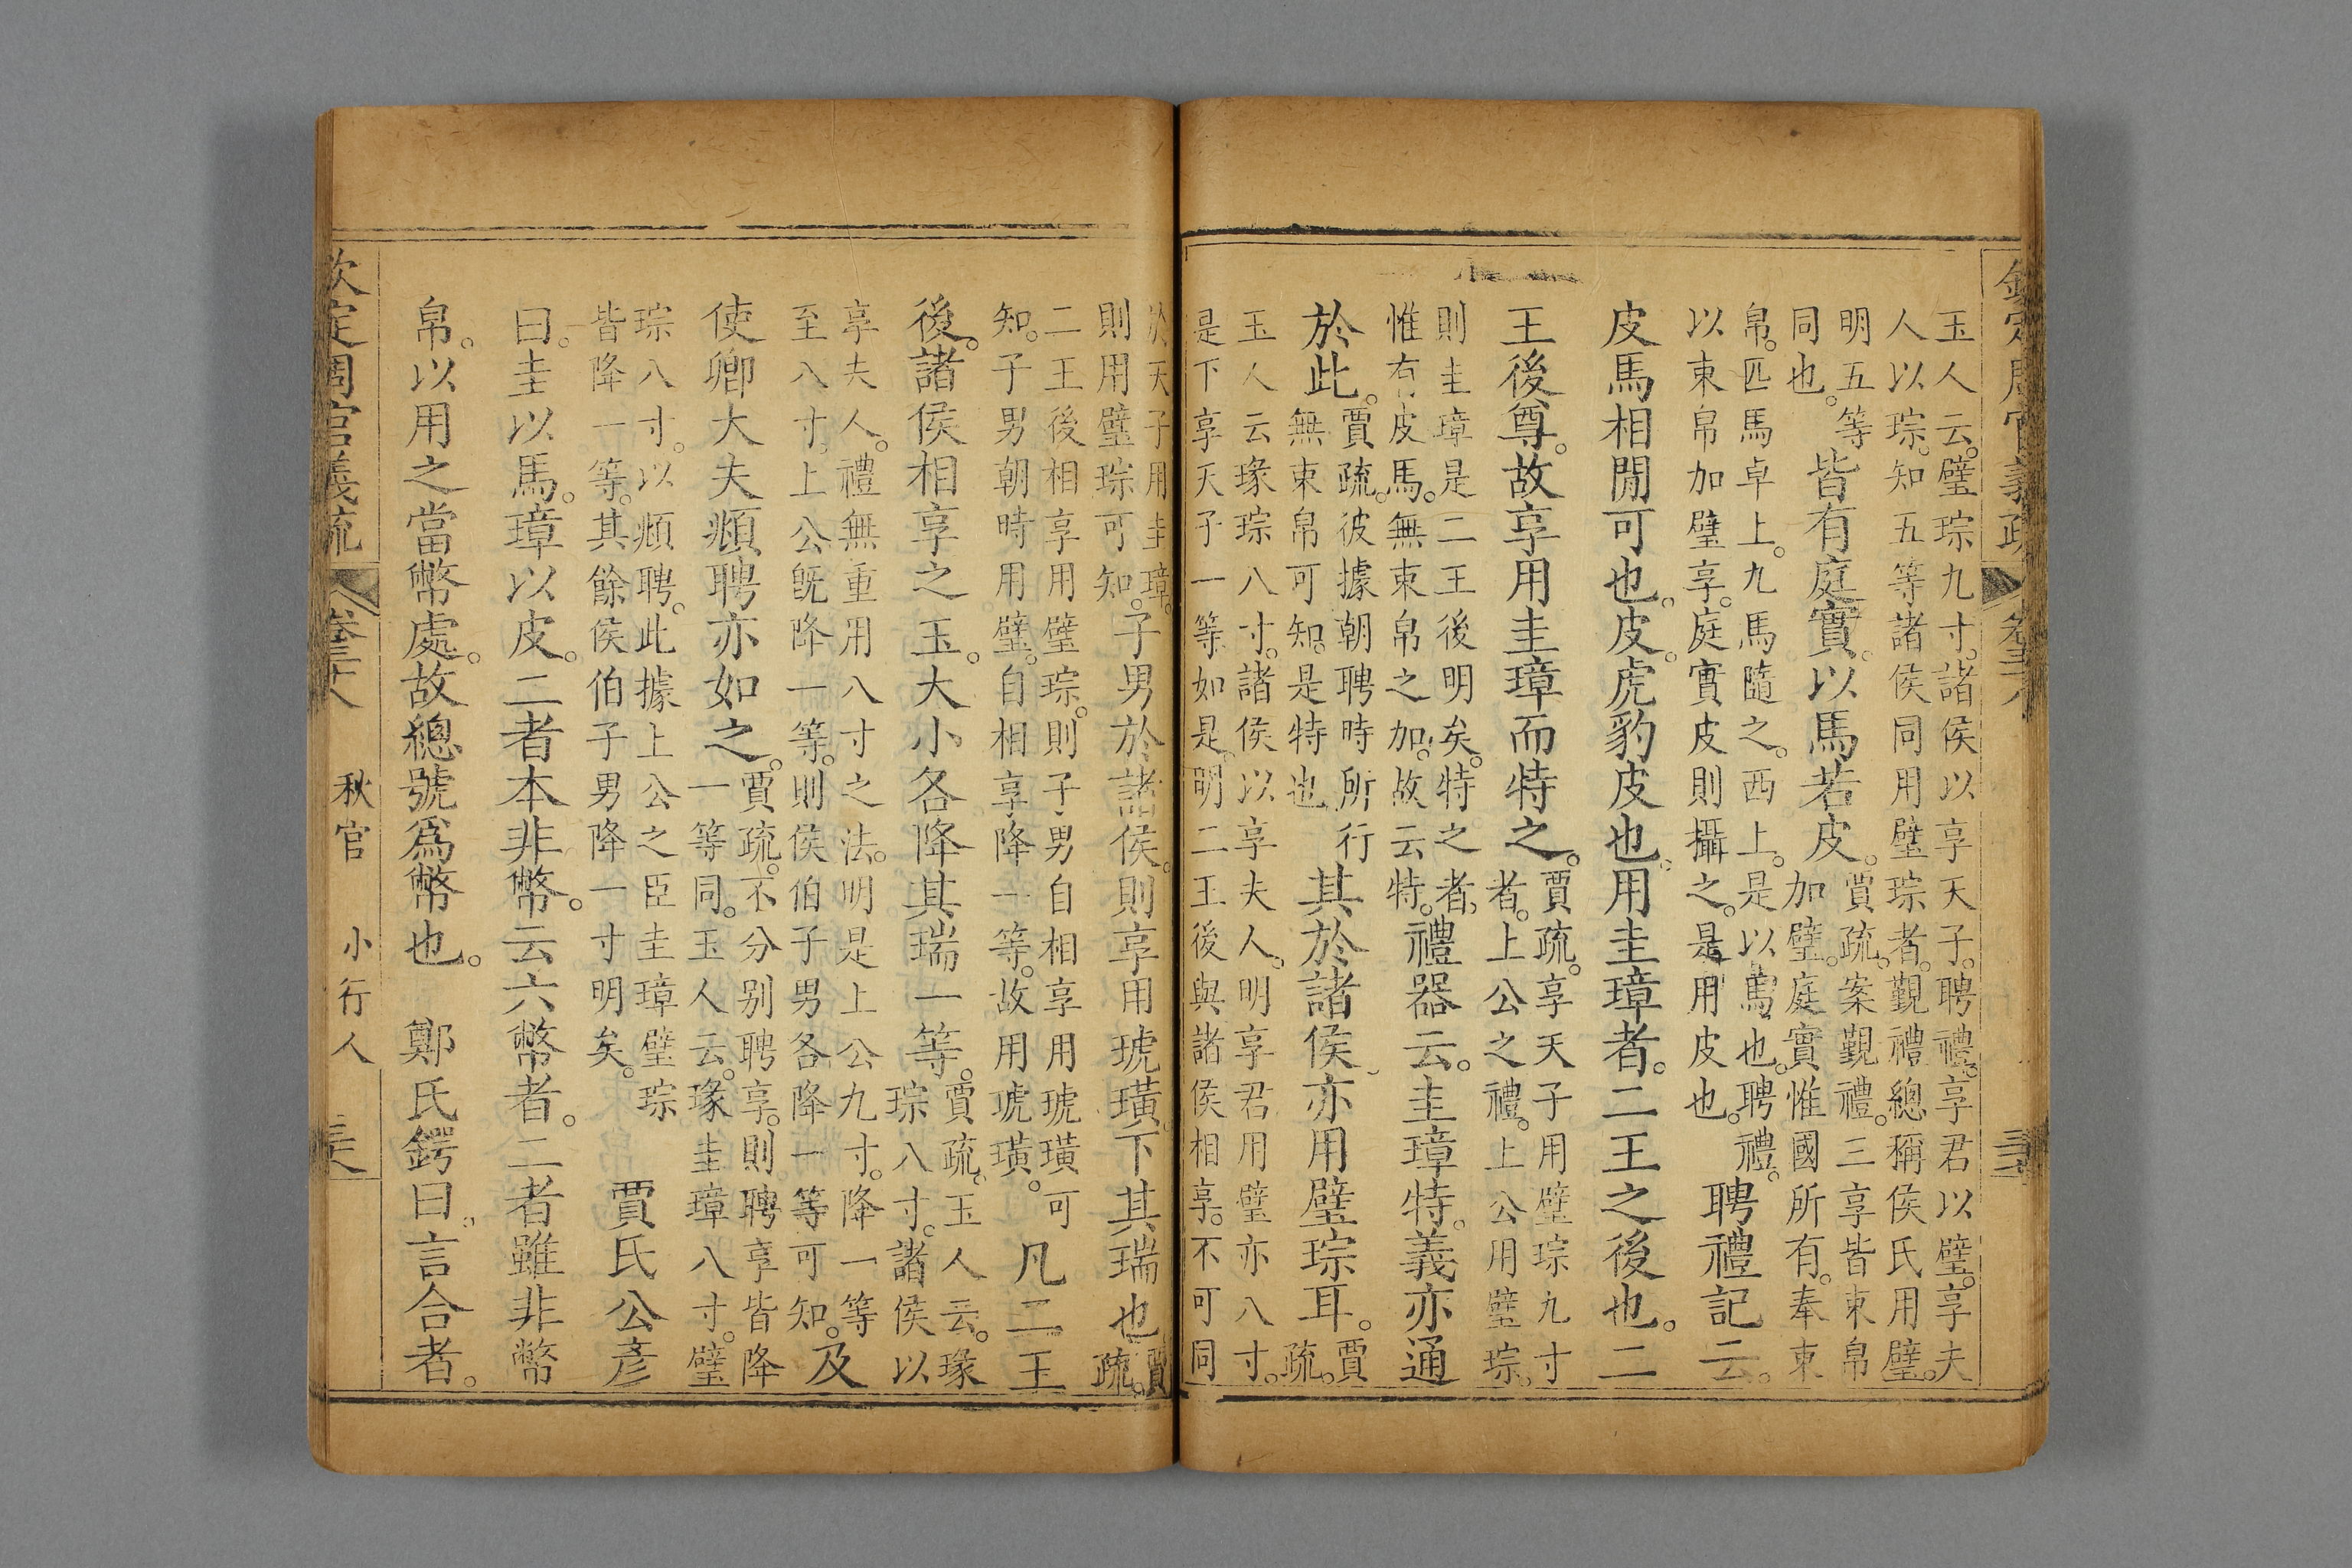 玉人云。璧琮九寸。諸侯以享天子。聘禮。享君以璧。享夫
人以琮。知五等諸侯同用璧琮者。覲禮總稱侯氏用璧。
明五等
同也。
皆有庭實。以馬若皮。
賈疏。案覲禮。三享皆束帛
加璧。庭實惟國所有。奉束
帛。匹馬卓上。九馬隨之。西上。是以馬也。聘禮。
以束帛加璧享。庭實皮則攝之。是用皮也。
聘禮記云。
皮馬相閒可也。皮。虎豹皮也。用圭璋者。二王之後也。二
王後尊。故享用圭璋而特之。
賈疏。享天子用璧琮九寸
者。上公之禮。上公用璧琮。
則圭璋是二王後明矣。特之者。
惟有皮馬。無束帛之加。故云特。
禮器云。圭璋特。義亦通
於此。
賈疏。彼據朝聘時所行
無束帛可知。是特也
其於諸侯亦用璧琮耳。
賈
疏。
玉人云瑑琮八寸。諸侯以享夫人。明享君用璧亦八寸。
是下享天子一等如是。明二王後與諸侯相享。不可同
於天子用圭璋。
則用璧琮可知。
子男於諸侯。則享用琥璜。下其瑞也
賈
疏。
二王後相享用璧琮。則子男自相享用琥璜可
知。子男朝時用璧。自相享降一等。故用琥璜。
凡二王
後。諸侯相享之玉。大小各降其瑞一等。
賈疏。玉人云。瑑
琮八寸。諸侯以
享夫人。禮無重用八寸之法。明是上公九寸。降一等
至八寸。上公旣降一等。則侯伯子男各降一等可知。
及
使卿大夫覜聘亦如之。
賈疏。不分别聘享。則聘享皆降
一等同。玉人云。瑑圭璋八寸。璧
琮八寸。以覜聘。此據上公之臣圭璋璧琮
皆降一等。其餘侯伯子男降一寸明矣。
賈氏公彥
曰。圭以馬。璋以皮。二者本非幣。云六幣者。二者雖非幣
帛。以用之當幣處。故總號爲幣也。 鄭氏鍔曰。言合者。
欽定周官義疏 卷三十八 秋官 小行人